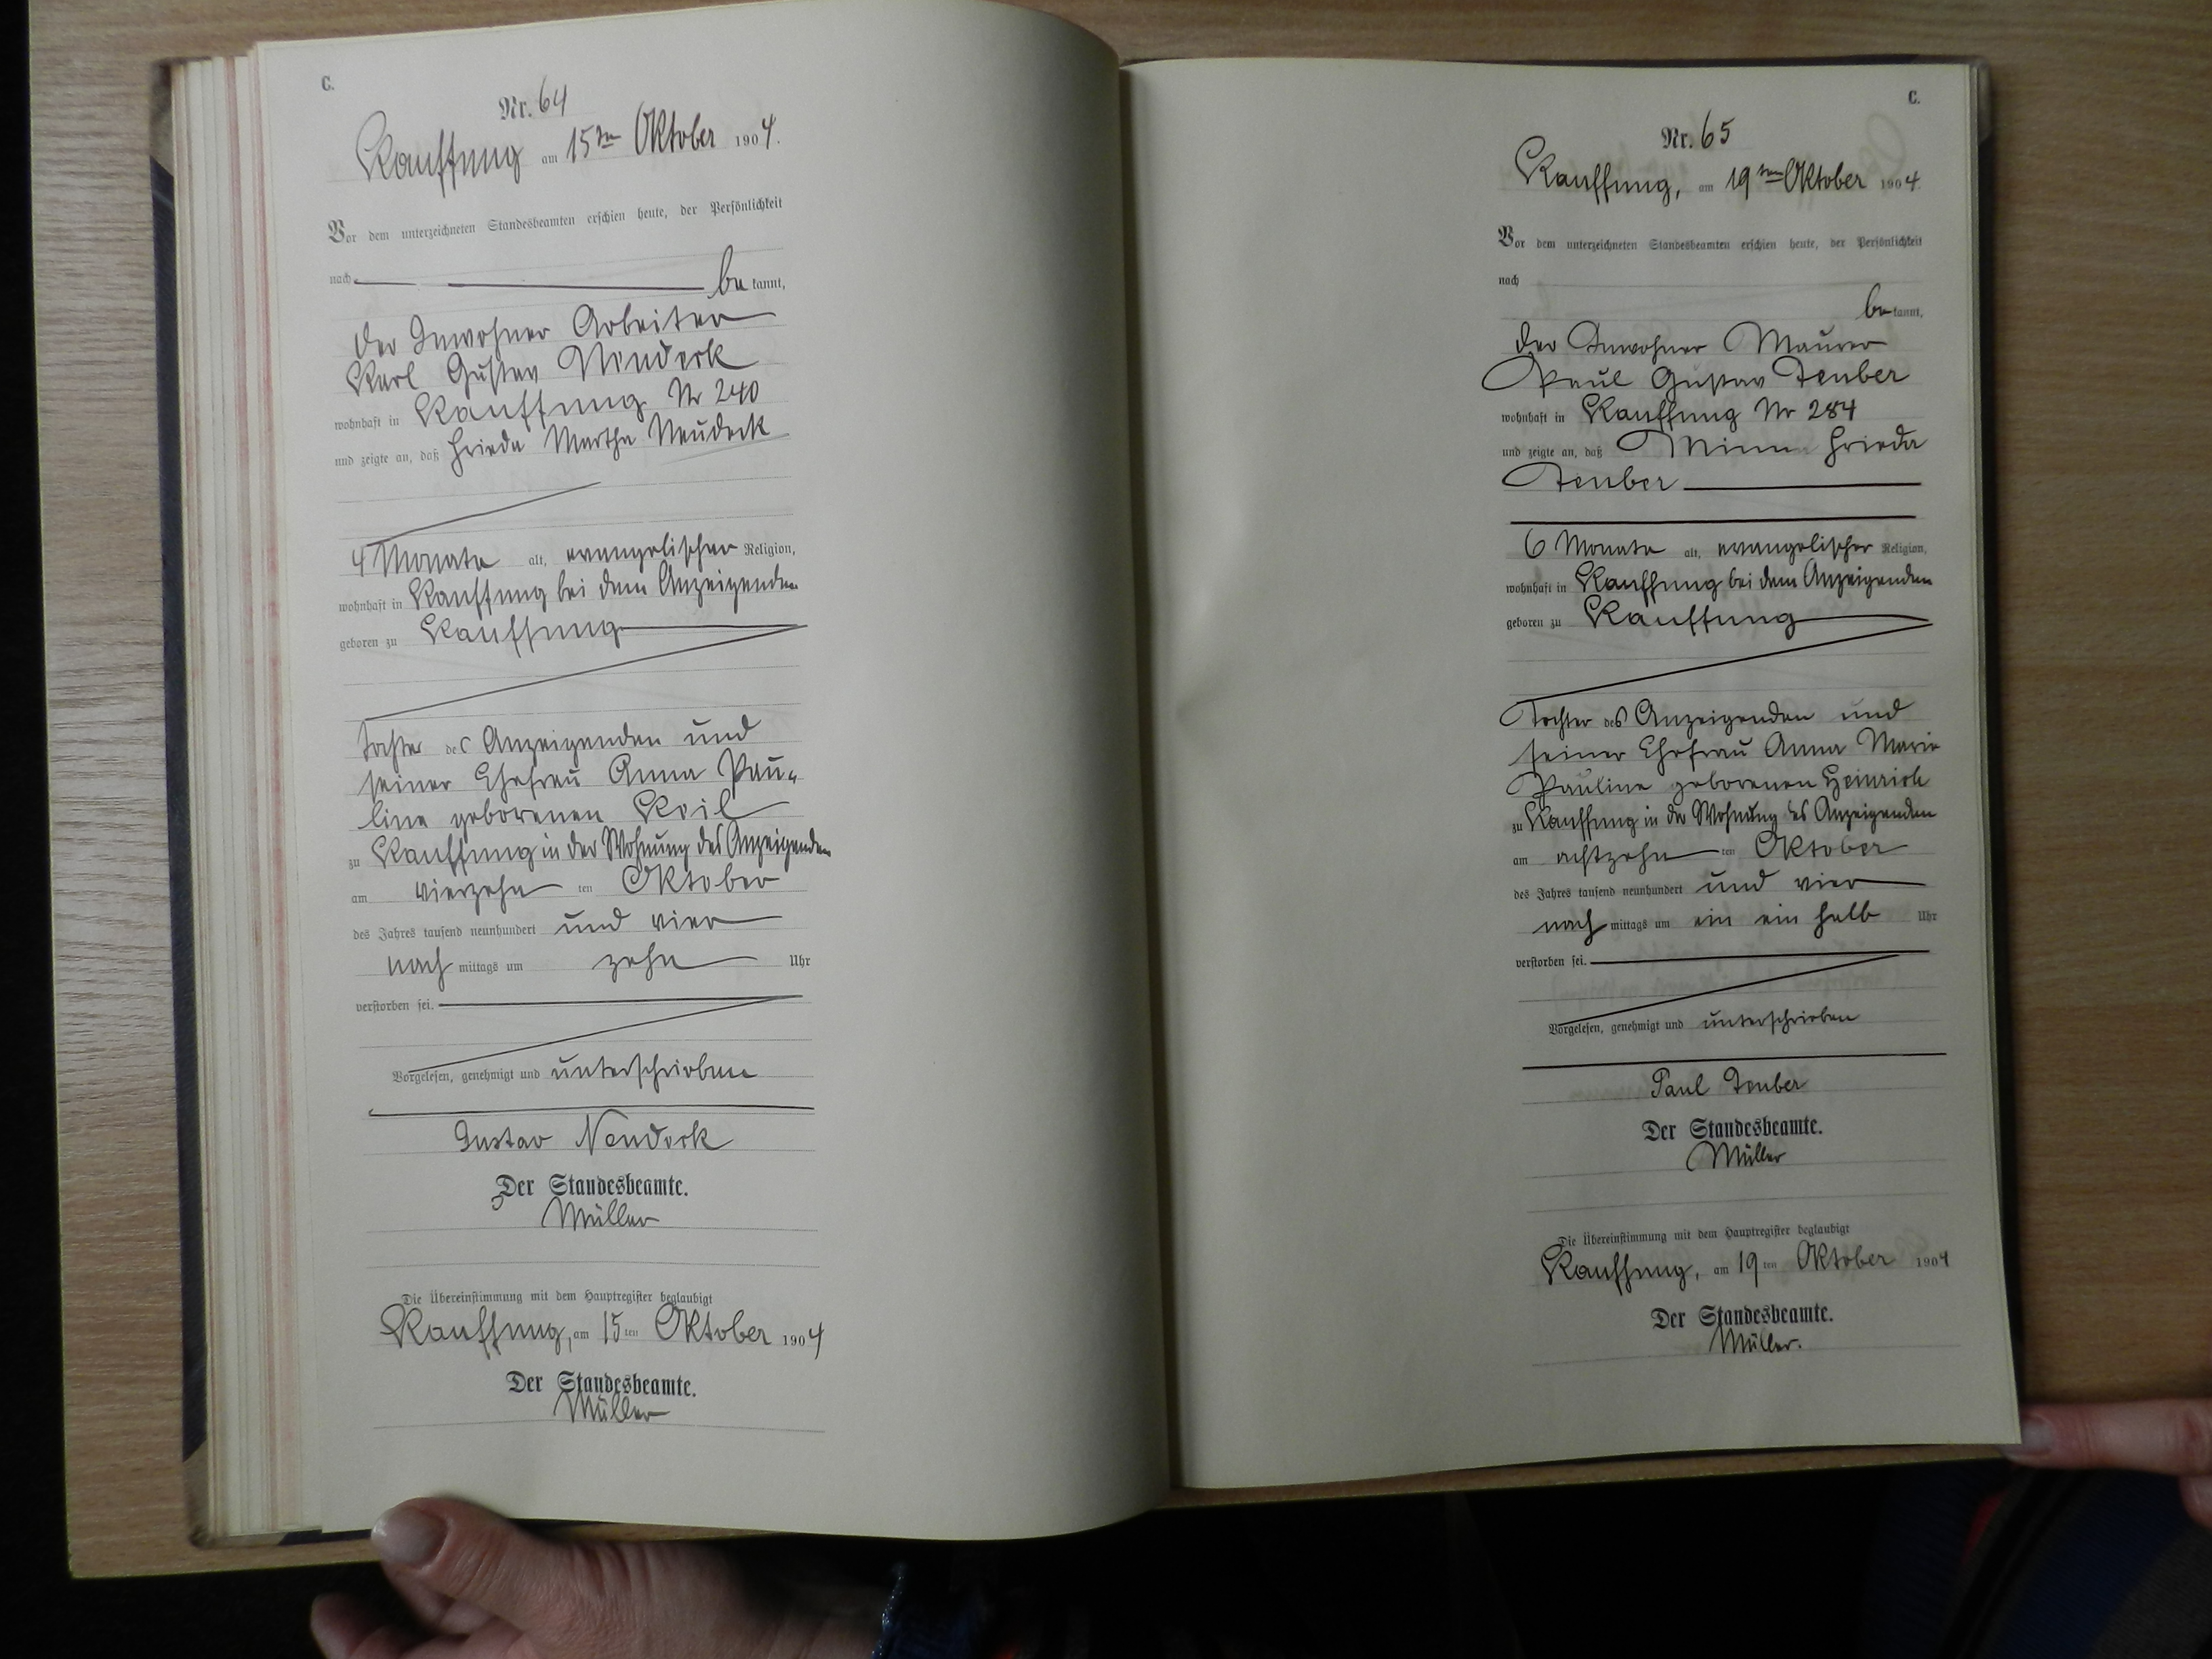 C.
Nr. 64
Kauffung am 15ten Oktober 1904.
Vor dem unterzeichneten Standesbeamten erschien heute, der Persönlichkeit
nach be kannt,
der Inwohner Arbeiter
Karl Gustav Neudeck
wohnhaft in Kauffung Nr 240
und zeigte an, daß Frieda Martha Neudeck
4 Monate alt, evangelischer Religion,
wohnhaft in Kauffung bei dem Anzeigenden
geboren zu Kauffung
Tochter des Anzeigenden und
seiner Ehefrau Anna Pau-
line geborenen Keil
zu Kauffung in der Wohnung des Anzeigenden
am vierzehn ten Oktober
des Jahres tausend neunhundert und vier
nach mittags um zehn Uhr
verstorben sei.
Vorgelesen, genehmigt und unterschrieben
Gustav Neudeck
Der Standesbeamte.
Müller
Die Übereinstimmung mit dem Hauptregister beglaubigt
Kauffung, am 15 ten Oktober 1904
Der Standesbeamte.
Müller
C.
Nr. 65
Kauffung, am 19ten Oktober 1904.
Vor dem unterzeichneten Standesbeamten erschien heute, der Persönlichkeit
nach
be kannt,
der Inwohner Maurer
Paul Gustav Teuber
wohnhaft in Kauffung Nr 284
und zeigte an, daß Minna Frieda
Teuber
6 Monate alt, evangelischer Religion,
wohnhaft in Kauffung bei dem Anzeigenden
geboren zu Kauffung
Tochter des Anzeigenden und
seiner Ehefrau Anna Marie
Pauline geborenen Heinrich
zu Kauffung in der Wohnung des Anzeigenden
am achtzehn ten Oktober
des Jahres tausend neunhundert und vier
nach mittags um ein ein halb Uhr
verstorben sei.
Vorgelesen, genehmigt und unterschrieben
Paul Teuber
Der Standesbeamte.
Müller
Die Übereinstimmung mit dem Hauptregister beglaubigt
Kauffung, am 19 ten Oktober 1904
Der Standesbeamte.
Müller.